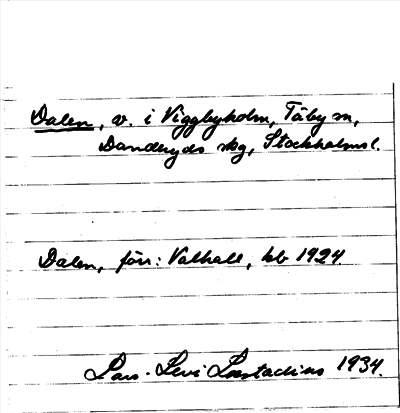 Dalen, v. i Viggbyholm, Täby sn,
Danderyds skg, Stockholms l.
Dalen, förr: Valhall, kb 1924
Lars-Levi Læstadius 1934.